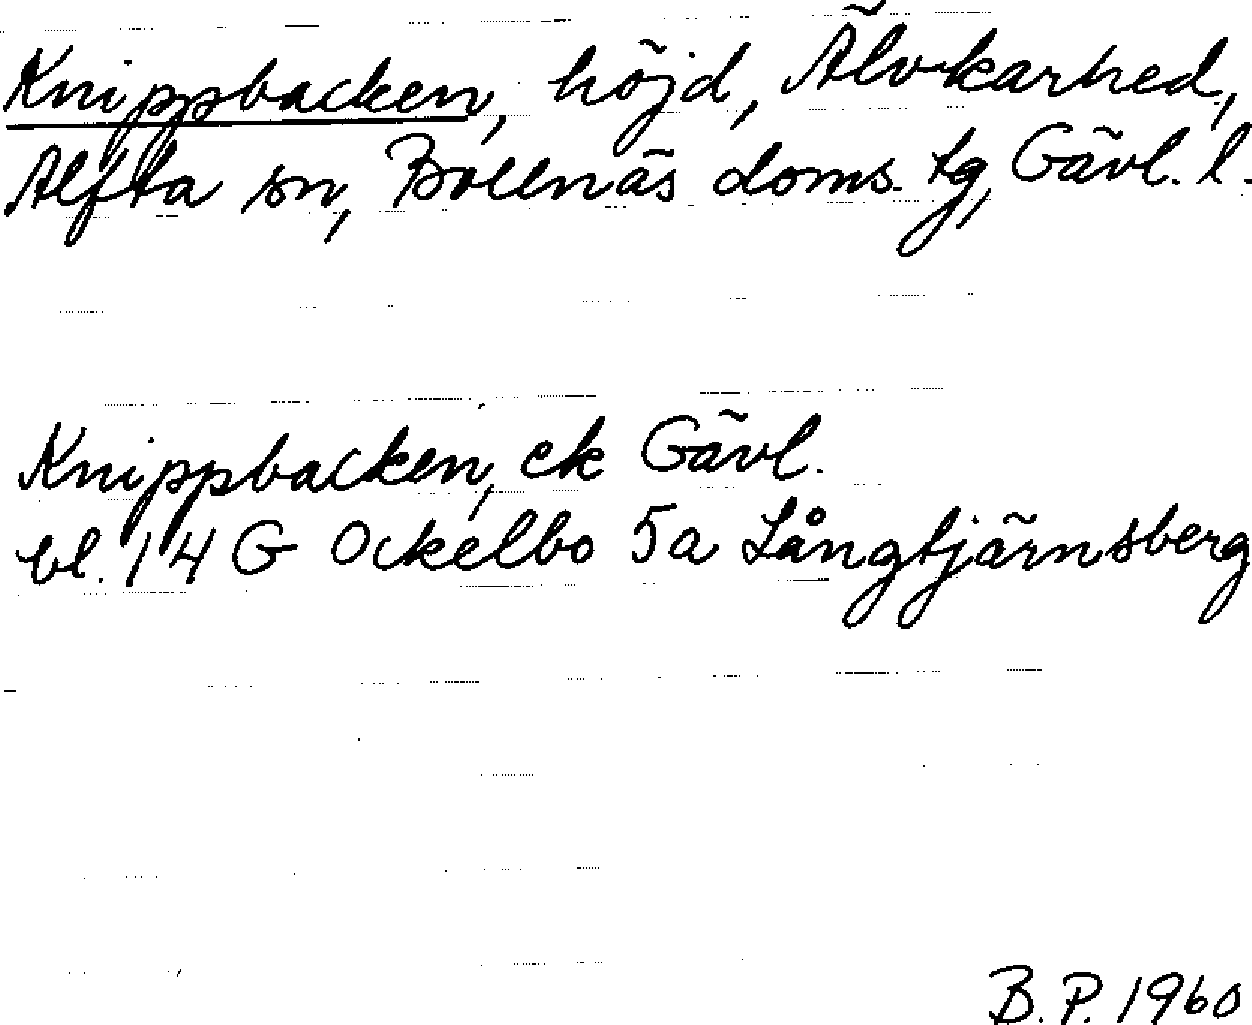 Knippbacken, höjd, Älvkarhed,
Alfta sn, Bollnäs doms. tg, Gävl. l.
Knippbacken, ek Gävl.
bl. 14 G Ockelbo 5a Långtjärnsberg
B.P. 1960